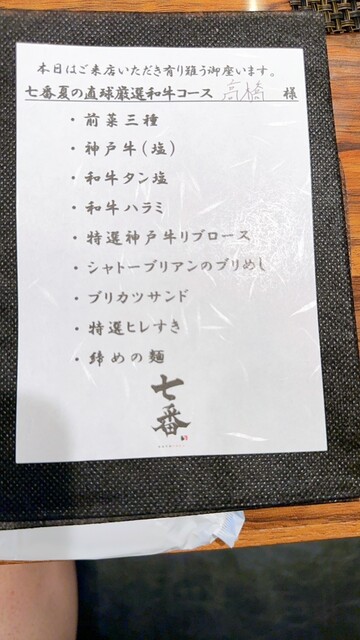 本日はご来店いただき有り難う御座います。
七番夏の直球厳選和牛コース 高橋 様
・前菜三種
・神戸牛(塩)
・和牛タン塩
・和牛ハラミ
・特選神戸牛リブロース
・シャトーブリアンのブリめし
・ブリカツサンド
・特選ヒレすき
・締めの麺
七番